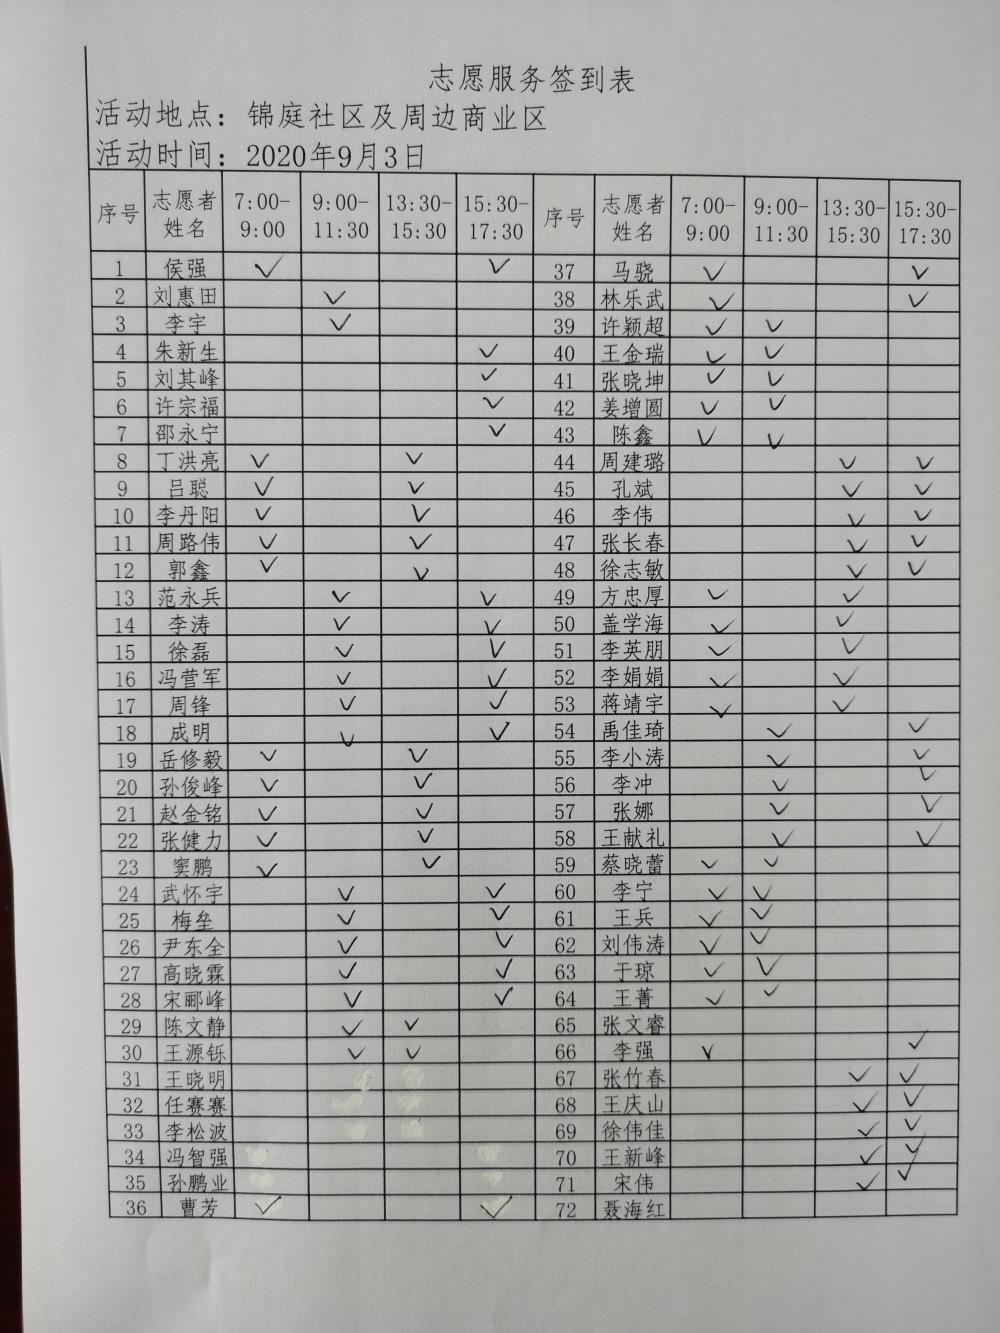 志愿服务签到表
活动地点：锦庭社区及周边商业区
活动时间：2020年9月3日
序号 志愿者姓名 7:00-9:00 9:00-11:30 13:30-15:30 15:30-17:30 序号 志愿者姓名 7:00-9:00 9:00-11:30 13:30-15:30 15:30-17:30
1 侯强 ✓ ✓ 37 马骁 ✓ ✓
2 刘惠田 ✓ 38 林乐武 ✓ ✓
3 李宇 ✓ 39 许颖超 ✓ ✓
4 朱新生 ✓ 40 王金瑞 ✓ ✓
5 刘其峰 ✓ 41 张晓坤 ✓ ✓
6 许宗福 ✓ 42 姜增圆 ✓ ✓
7 邵永宁 ✓ 43 陈鑫 ✓ ✓
8 丁洪亮 ✓ ✓ 44 周建璐 ✓ ✓
9 吕聪 ✓ ✓ 45 孔斌 ✓ ✓
10 李丹阳 ✓ ✓ 46 李伟 ✓ ✓
11 周路伟 ✓ ✓ 47 张长春 ✓ ✓
12 郭鑫 ✓ ✓ 48 徐志敏 ✓ ✓
13 范永兵 ✓ ✓ 49 方忠厚 ✓ ✓
14 李涛 ✓ ✓ 50 盖学海 ✓ ✓
15 徐磊 ✓ ✓ 51 李英朋 ✓ ✓
16 冯营军 ✓ ✓ 52 李娟娟 ✓ ✓
17 周锋 ✓ ✓ 53 蒋靖宇 ✓ ✓
18 成明 ✓ ✓ 54 禹佳琦 ✓ ✓
19 岳修毅 ✓ ✓ 55 李小涛 ✓ ✓
20 孙俊峰 ✓ ✓ 56 李冲 ✓ ✓
21 赵金铭 ✓ ✓ 57 张娜 ✓ ✓
22 张健力 ✓ ✓ 58 王献礼 ✓ ✓
23 窦鹏 ✓ ✓ 59 蔡晓蕾 ✓ ✓
24 武怀宇 ✓ ✓ 60 李宁 ✓ ✓
25 梅垒 ✓ ✓ 61 王兵 ✓ ✓
26 尹东全 ✓ ✓ 62 刘伟涛 ✓ ✓
27 高晓霖 ✓ ✓ 63 于琼 ✓ ✓
28 宋郦峰 ✓ ✓ 64 王菁 ✓ ✓
29 陈文静 ✓ ✓ 65 张文睿
30 王源铄 ✓ ✓ 66 李强 ✓ ✓
31 王晓明 67 张竹春 ✓ ✓
32 任赛赛 68 王庆山 ✓ ✓
33 李松波 69 徐伟佳 ✓ ✓
34 冯智强 70 王新峰 ✓ ✓
35 孙鹏业 71 宋伟 ✓ ✓
36 曹芳 ✓ ✓ 72 聂海红